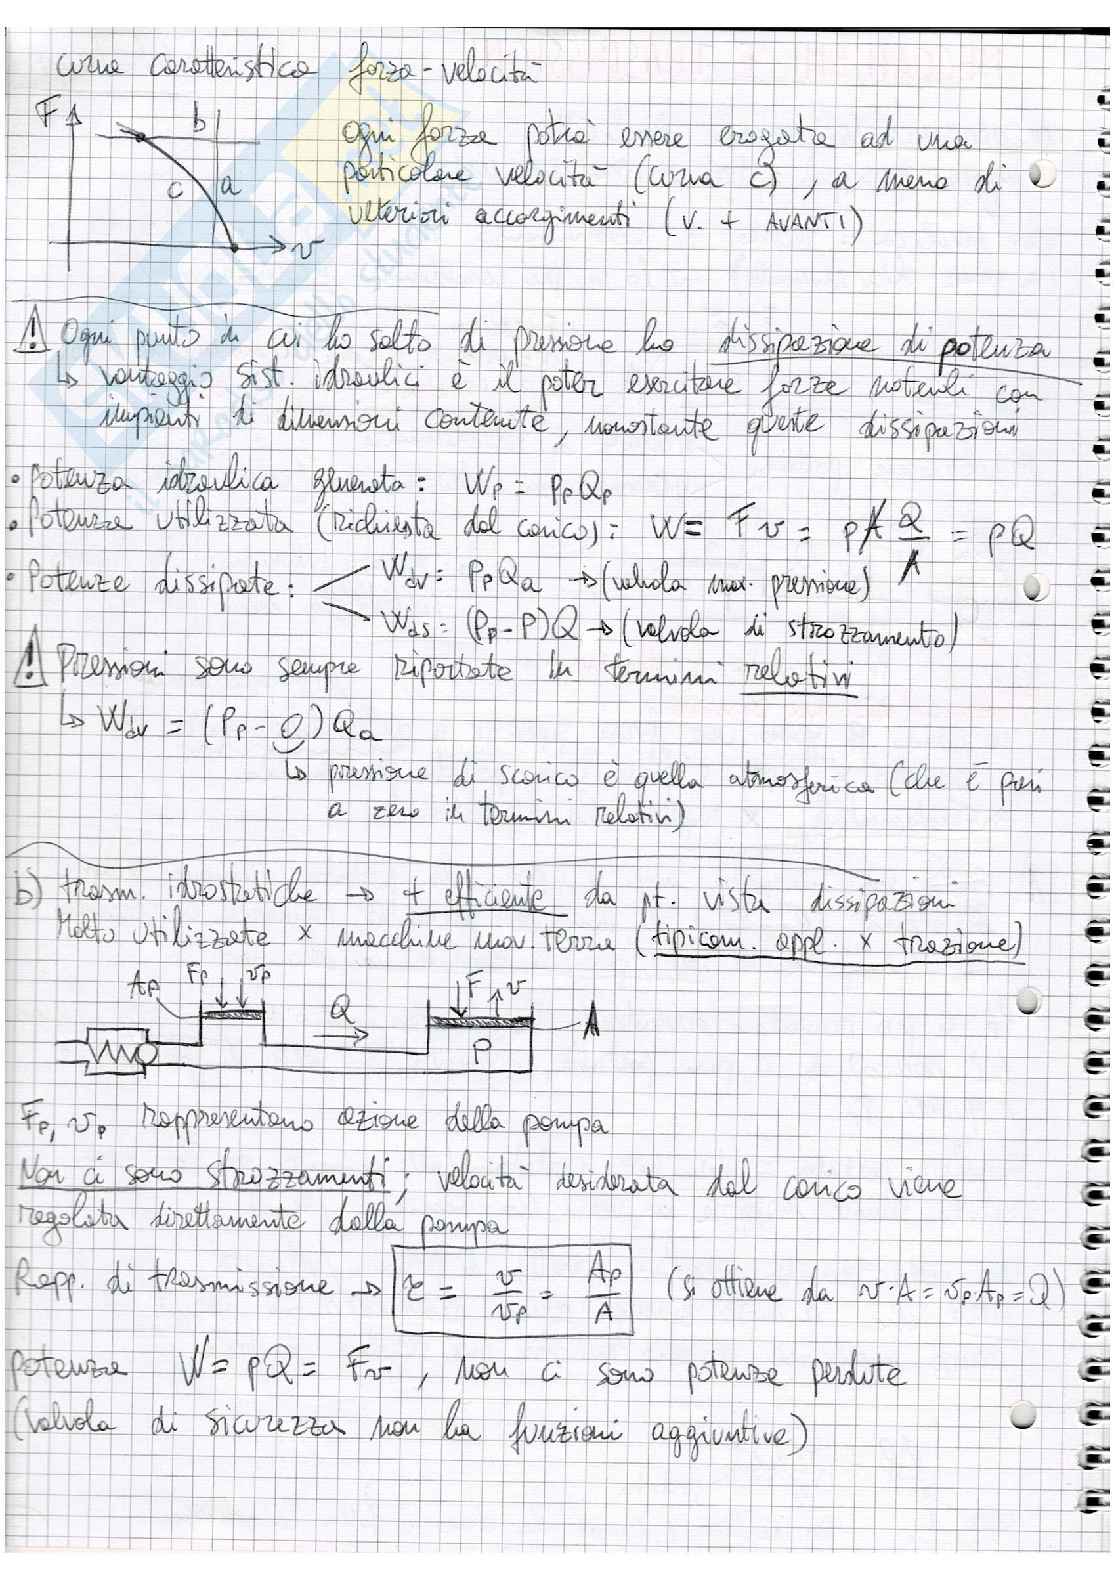 curva caratteristica forza-velocità
F
b
c
a
v
Ogni forza potrà essere erogata ad una
particolare velocità (curva c), a meno di
ulteriori accorgimenti (V. + AVANTI)
! Ogni punto in cui ho salto di pressione ho dissipazione di potenza
↳ vantaggio sist. idraulici è il poter esercitare forze notevoli con
impianti di dimensioni contenute, nonostante queste dissipazioni
• Potenza idraulica generata: Wp = Pp Qp
• Potenza utilizzata (richiesta dal carico): W = F v = p A Q/A = pQ
• Potenze dissipate: Wdv = Pp Qa → (valvola max. pressione)
Wds = (Pp - P)Q → (valvola di strozzamento)
! Pressioni sono sempre riportate in termini relativi
↳ Wdv = (Pp - 0) Qa
↳ pressione di scarico è quella atmosferica (che è pari
a zero in termini relativi)
b) trasm. idrostatiche → + efficiente da pt. vista dissipazioni
Molto utilizzate x macchine mov. terra (tipicam. appl. x trazione)
Ap
Fp
vp
Q
F
v
A
P
Fp, vp rappresentano azione della pompa
Non ci sono strozzamenti; velocità desiderata dal carico viene
regolata direttamente dalla pompa
Rapp. di trasmissione → τ = v/vp = Ap/A (si ottiene da v·A = vp·Ap = Q)
Potenza W = pQ = Fv, non ci sono potenze perdute
(valvola di sicurezza non ha funzioni aggiuntive)